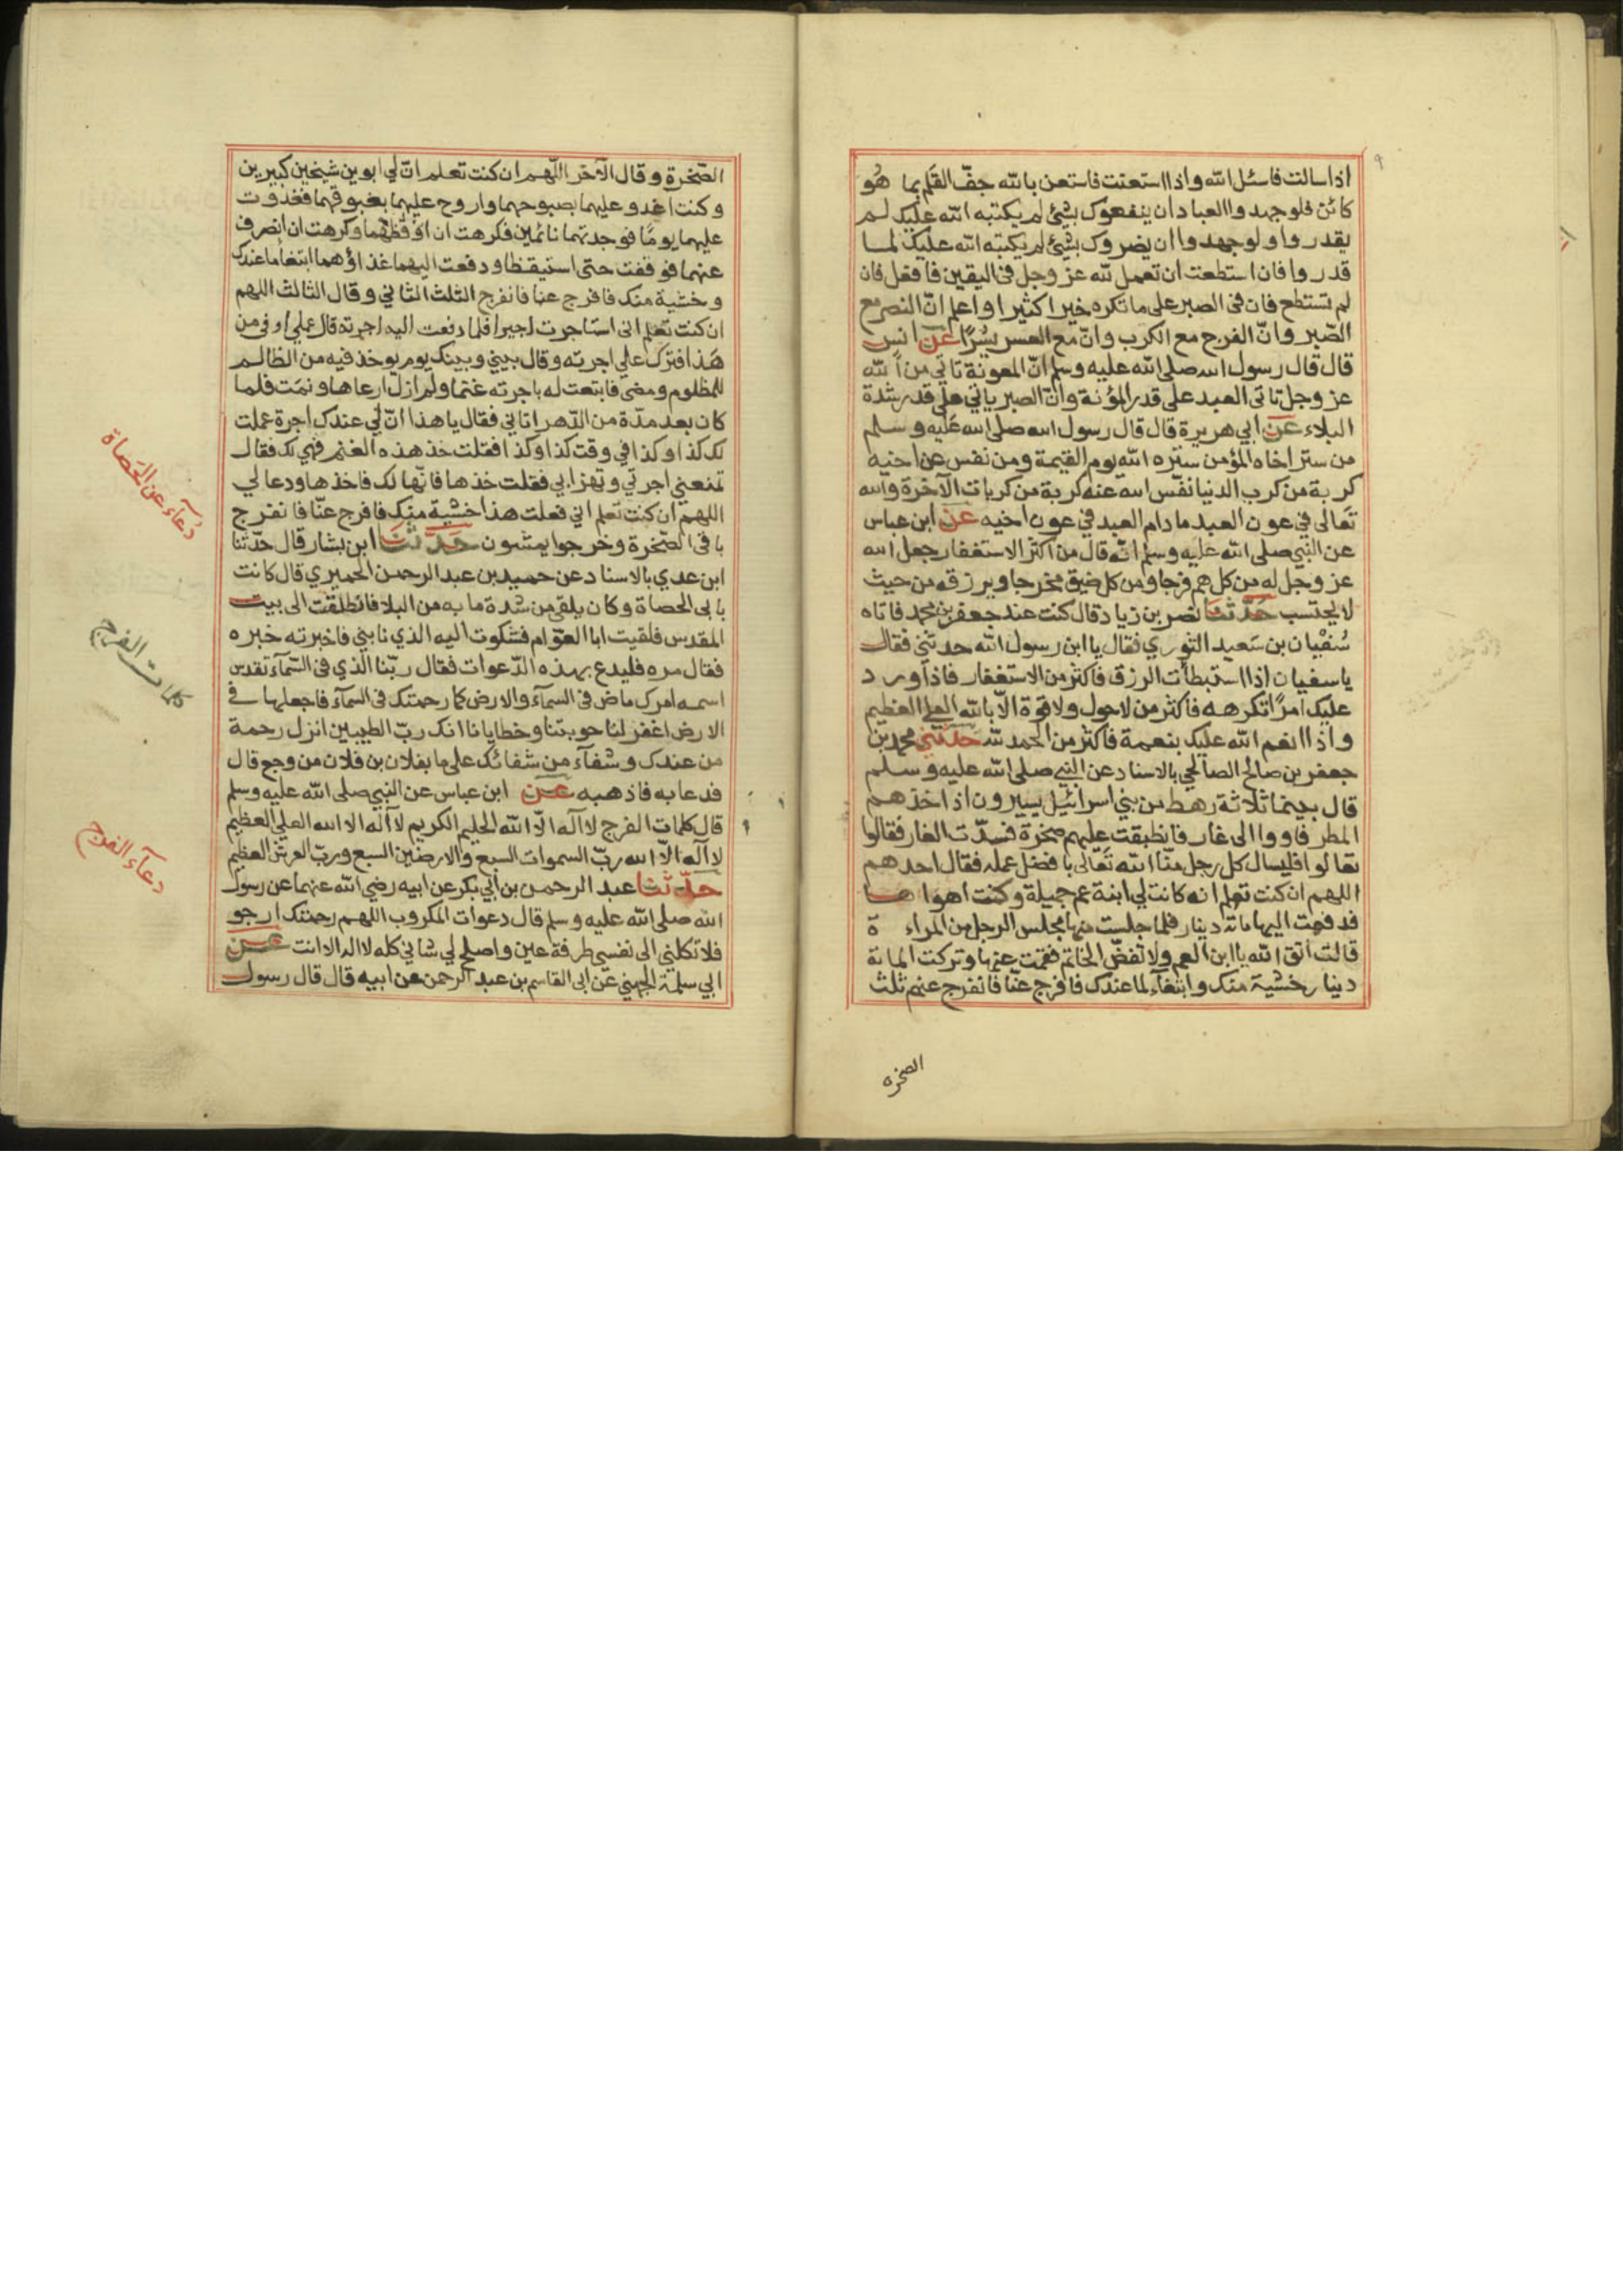 ٩
اذا سالت فاسئل الله واذا استعنت فاستعن بالله جفّ القلم بما هُو
كائن فلو جهد واالعباد ان ينفعوك بشئ لم يكتبه الله عليك لم
يقدروا ولو جهدوا ان يضروك بشئ لم يكتبه الله عليك لما
قدروا فان استطعت ان تعمل لله عز وجل في اليقين فافعل فان
لم تستطع فان في الصبر على ما تكره خيرا كثيرا واعلم انّ النصر مع
الصّبر وانّ الفرج مع الكرب وانّ مع العسر يسُرًا عن انس
قال قال رسول الله صلى الله عليه وسلم انّ المعونة تاتي من الله
عز وجل تاتى العبد على قدر المؤنة وانّ الصبر ياتي على قدر شدة
البلاء عن ابي هريرة قال قال رسول الله صلى الله عليه وسلم
من ستر اخاه المؤمن ستره الله يوم القيمة ومن نفس عن اخيه
كربة من كرب الدنيا نفّس الله عنه كربة من كربات الآخرة والله
تعالى في عون العبد ما دام العبد في عون اخيه عن ابن عباس
عن النبي صلى الله عليه وسلم انّه قال من اكثر الاستغفار جعل الله
عز وجّل له من كل هم فرجا ومن كل ضيق مخرجا ويرزقه من حيث
لا يحتسب حدّثنا نصر بن زياد قال كنت عند جعفر بن محمد فاتاه
سُفيْان بن سَعيد الثوري فقال يا ابن رسول الله حدثني فقال
يا سفيان اذا استبطأت الرزق فاكثر من الاستغفار فاذا ورد
عليك امرًا تكرهه فاكثر من لاحول ولاقوة الّا بالله العلي العظيم
واذا انعم الله عليك بنعمة فاكثر من الحمد لله حدّثني محمد بن
جعفر بن صالح الصالحي بالاسناد عن النبي صلى الله عليه وسلم
قال بينما ثلاثة رهط من بني اسرائيل يسيرون اذ اخذهم
المطر فاووا الى غار فانطبقت عليهم صخرة فسدّت الغار فقالوا
تعالوا فليسال كل رجل منّا الله تعَالى بافضل عمله فقال احدهم
اللهم ان كنت تعلم انه كانت لي ابنة عم جميلة وكنت اهواها
فدفعت اليها مائة دينار فلما جلست منها مجلس الرجل من المراءة
قالت اتق الله يا ابن العم ولا تفضّ الخاتم فقمت عنها وتركت المائة
دينار خشية منك وابتغآء لما عندك فافرج عنّا فانفرج عنهم ثلث
الصخره
الصّخرة وقال الآخر اللّهم ان كنت تعلم انّ لي ابوين شيخين كبيرين
وكنت اغدو عليهما بصبوحهما واروح عليهما بغبوقهما فغدوت
عليهما يومًا فوجدتهما نائمين فكرهت ان اوقظهما وكرهت ان انصرف
عنهما فوقفت حتى استيقظا ودفعت اليهما غذاؤهما ابتغا ما عندك
وخشية منك فافرج عنا فانفرج الثلث الثاني وقال الثالث اللهم
ان كنت تعلم انى استاجرت اجيرا فلما دفعت اليه اجرته قال عملي اوفى من
هَذا فترك علي اجرته وقال بيني وبينك يوم يوخذ فيه من الظالم
للمظلوم ومضى فابتعت له باجرته غنما ولم ازل ارعاها ونمَت فلما
كان بعد مدّة من الدّهر اتاني فقال يا هذا انّ لي عندك اجرة عملت
لك كذا وكذا في وقت كذا وكذا فقلت خذ هذه الغنم فهي لك فقال
تمنعني اجرتي وتهزا بي فقلت خذها فانّها لك فاخذها ودعا لي
اللهمّ ان كنت تعلم اني فعلت هذا خشية منك فافرج عنّا فانفرج
باقي الصّخرة وخرجوا يمشون حَدّثنَا ابن بشار قال حدّثنا
ابن عدي بالاسناد عن حميد بن عبد الرحمن الحميري قال كانت
بابى الحصاة وكان يلقى من شدة ما به من البلا فانطلقت الى بيت
المقدس فلقيت ابا العوّام فشكوت اليه الذي نابني فاخبرته خبره
فقال مره فليدع بهذه الدّعوات فقال ربّنا الذي فى السّمآء تقدس
اسمه امرك ماض فى السمآء والارض كما رحمتك فى السمآء فاجعلها في
الارض اغفر لنا حوبتنا وخطايانا انك ربّ الطيبين انزل رحمة
من عندك وشفآء من شفائك على ما بفلان بن فلان من وجع قال
فدعا به فاذهبه عن ابن عباس عن النبي صلى الله عليه وسلم
قال كلمات الفرج لا آله الّا الله الحليم الكريم لا آله الا الله العلي العظيم
لا آله الّا الله ربّ السموات السبع والارضين السبع وربّ العرش العظيم
حدّثنا عبد الرحمن بن ابي بكر عن ابيه رضي الله عنهما عن رسول
الله صلى الله عليه وسلم قال دعوات المكروب اللهم رحمتك ارجو
فلا تكلني الى نفسي طرفة عين واصلح لي شاني كله لا اله الا انت عن
ابي سلمة الجهني عن ابى القاسم بن عبد الرحمن عن ابيه قال قال رسول
دُعآء عن الحَصاة
كلمات الفرج
دعآء الفرج